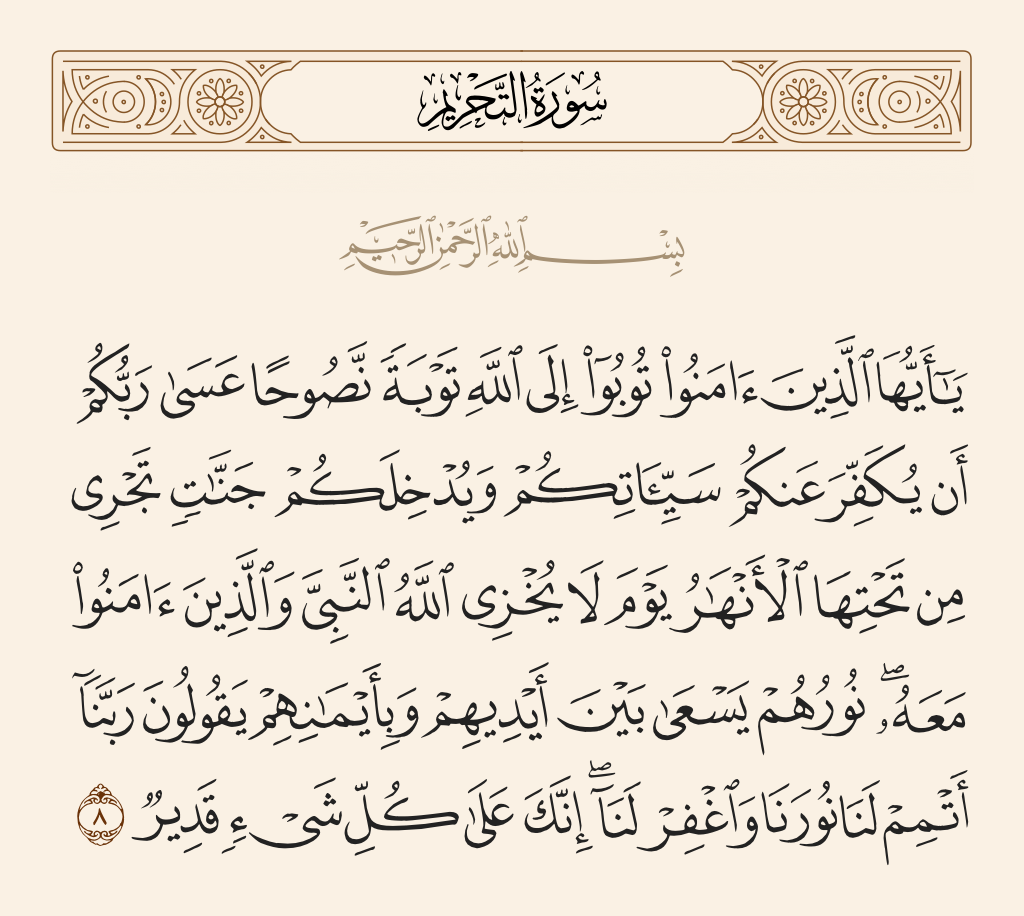 سُورَةُ التَّحْرِيمِ
بِسْمِ ٱللَّهِ ٱلرَّحْمَٰنِ ٱلرَّحِيمِ
يَٰٓأَيُّهَا ٱلَّذِينَ ءَامَنُوا۟ تُوبُوٓا۟ إِلَى ٱللَّهِ تَوْبَةً نَّصُوحًا عَسَىٰ رَبُّكُمْ
أَن يُكَفِّرَ عَنكُمْ سَيِّـَٔاتِكُمْ وَيُدْخِلَكُمْ جَنَّٰتٍ تَجْرِى
مِن تَحْتِهَا ٱلْأَنْهَٰرُ يَوْمَ لَا يُخْزِى ٱللَّهُ ٱلنَّبِىَّ وَٱلَّذِينَ ءَامَنُوا۟
مَعَهُۥ ۖ نُورُهُمْ يَسْعَىٰ بَيْنَ أَيْدِيهِمْ وَبِأَيْمَٰنِهِمْ يَقُولُونَ رَبَّنَآ
أَتْمِمْ لَنَا نُورَنَا وَٱغْفِرْ لَنَآ ۖ إِنَّكَ عَلَىٰ كُلِّ شَىْءٍ قَدِيرٌ ٨